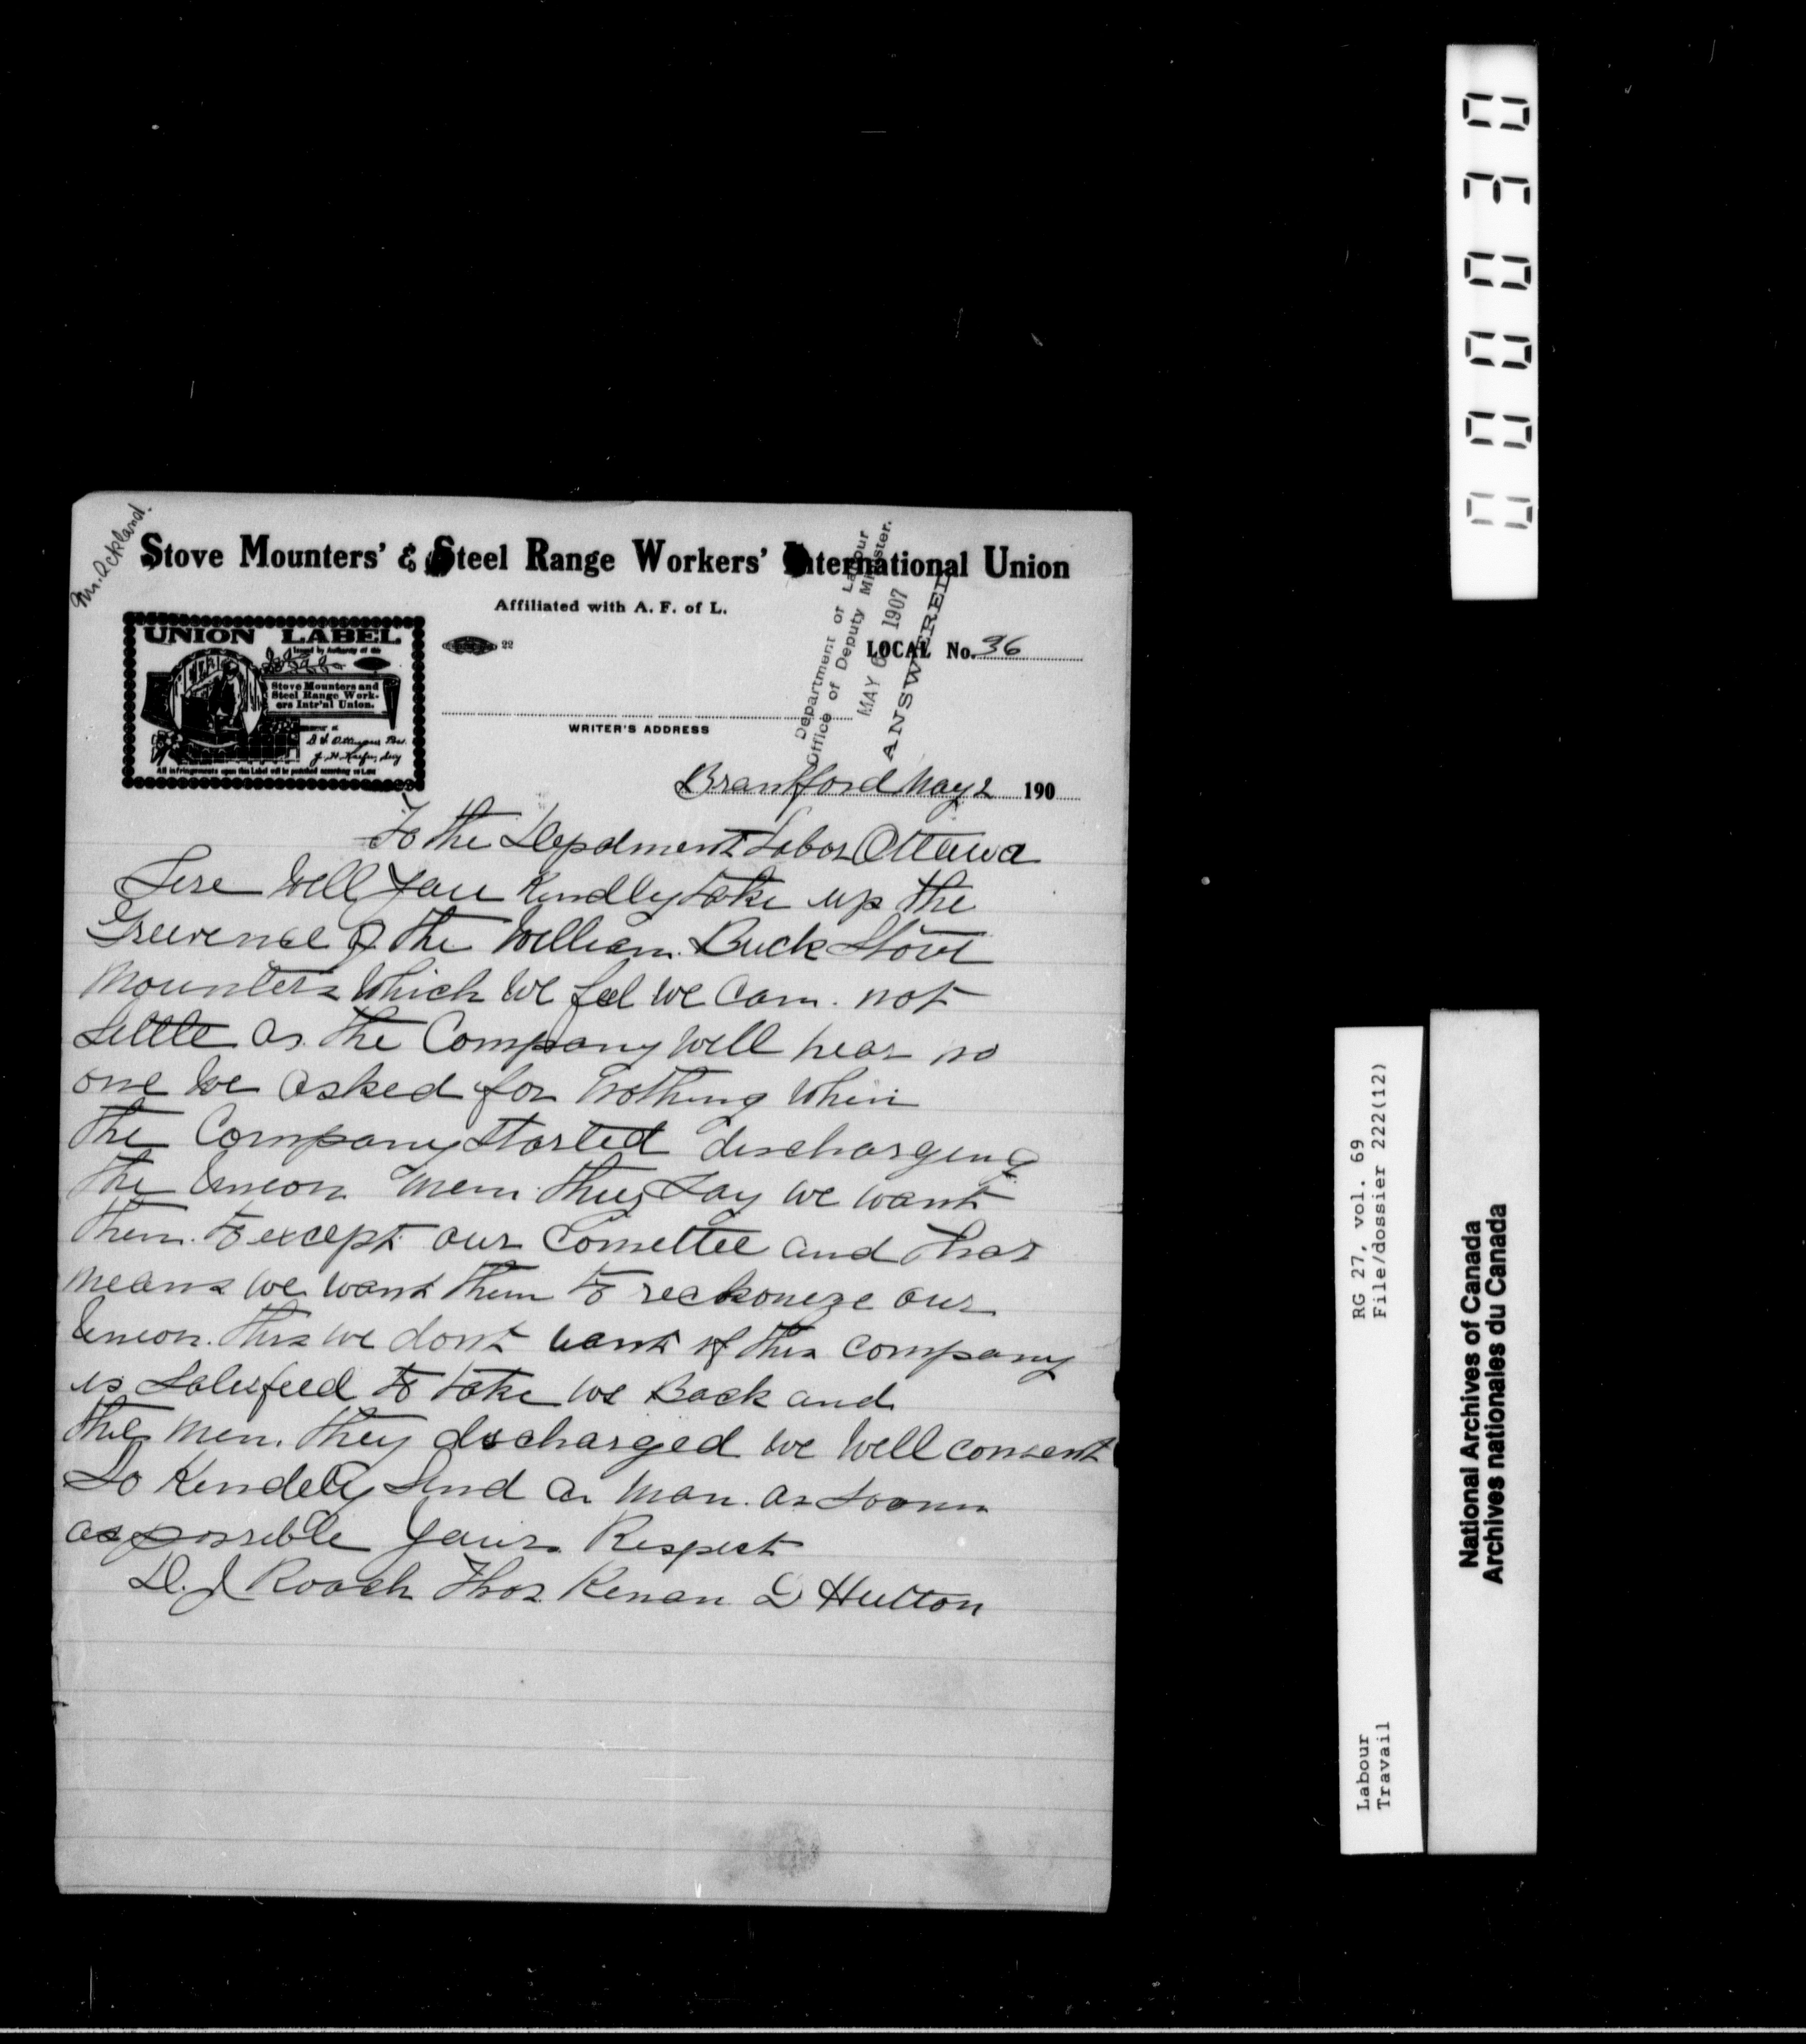 Mr. Ackland.
Stove Mounters' & Steel Range Workers' International Union
Affiliated with A. F. of L.
UNION LABEL
Issued by Authority of the
Stove Mounters and
Steel Range Work-
ers Intr'nl Union.
J. H. Kaefer, Secy
All infringements upon this Label will be punished according to Law
22
LOCAL No. 36
WRITER'S ADDRESS
Department of Labour
Office of Deputy Minister.
MAY 6 1907
ANSWERED
Brantford May 2 190
To the Depdment Labor Ottawa
Sere Well you Kindley take up the
Greevence of the William Buck Stove
Mounters Which We feel We Cam not
Settle as the Company Well hear no
one We asked for Nothing When
the Company started discharging
the Union Men they Say We want
them to except our Comettee and that
means we want them to reckoneze our
Union. this we dont want if this company
is Satesfeed to take us Back and
the men they discharged we Well consent
So Kendely Send a man as soon
as possible yours Respect
D. J Roach Thos Kenan D Hutton
000030
RG 27, vol. 69
File/dossier 222(12)
Labour
Travail
National Archives of Canada
Archives nationales du Canada